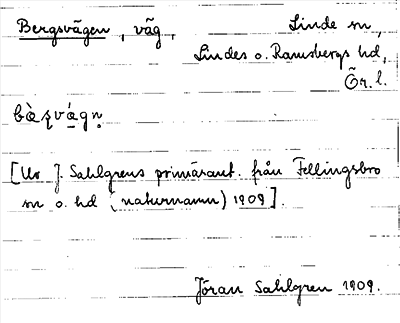 Bergsvägen, väg, Linde sn,
Lindes o. Ramsbergs hd,
Ör. l.
bæ̀ʂvá̱gn̥
[Ur J. Sahlgrens primärant. från Fellingsbro
sn o. hd (naturnamn) 1909].
Jöran Sahlgren 1909.